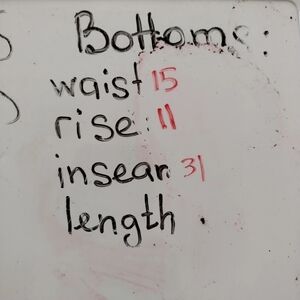 Bottoms:
waist 15
rise: 11
insean 31
length .